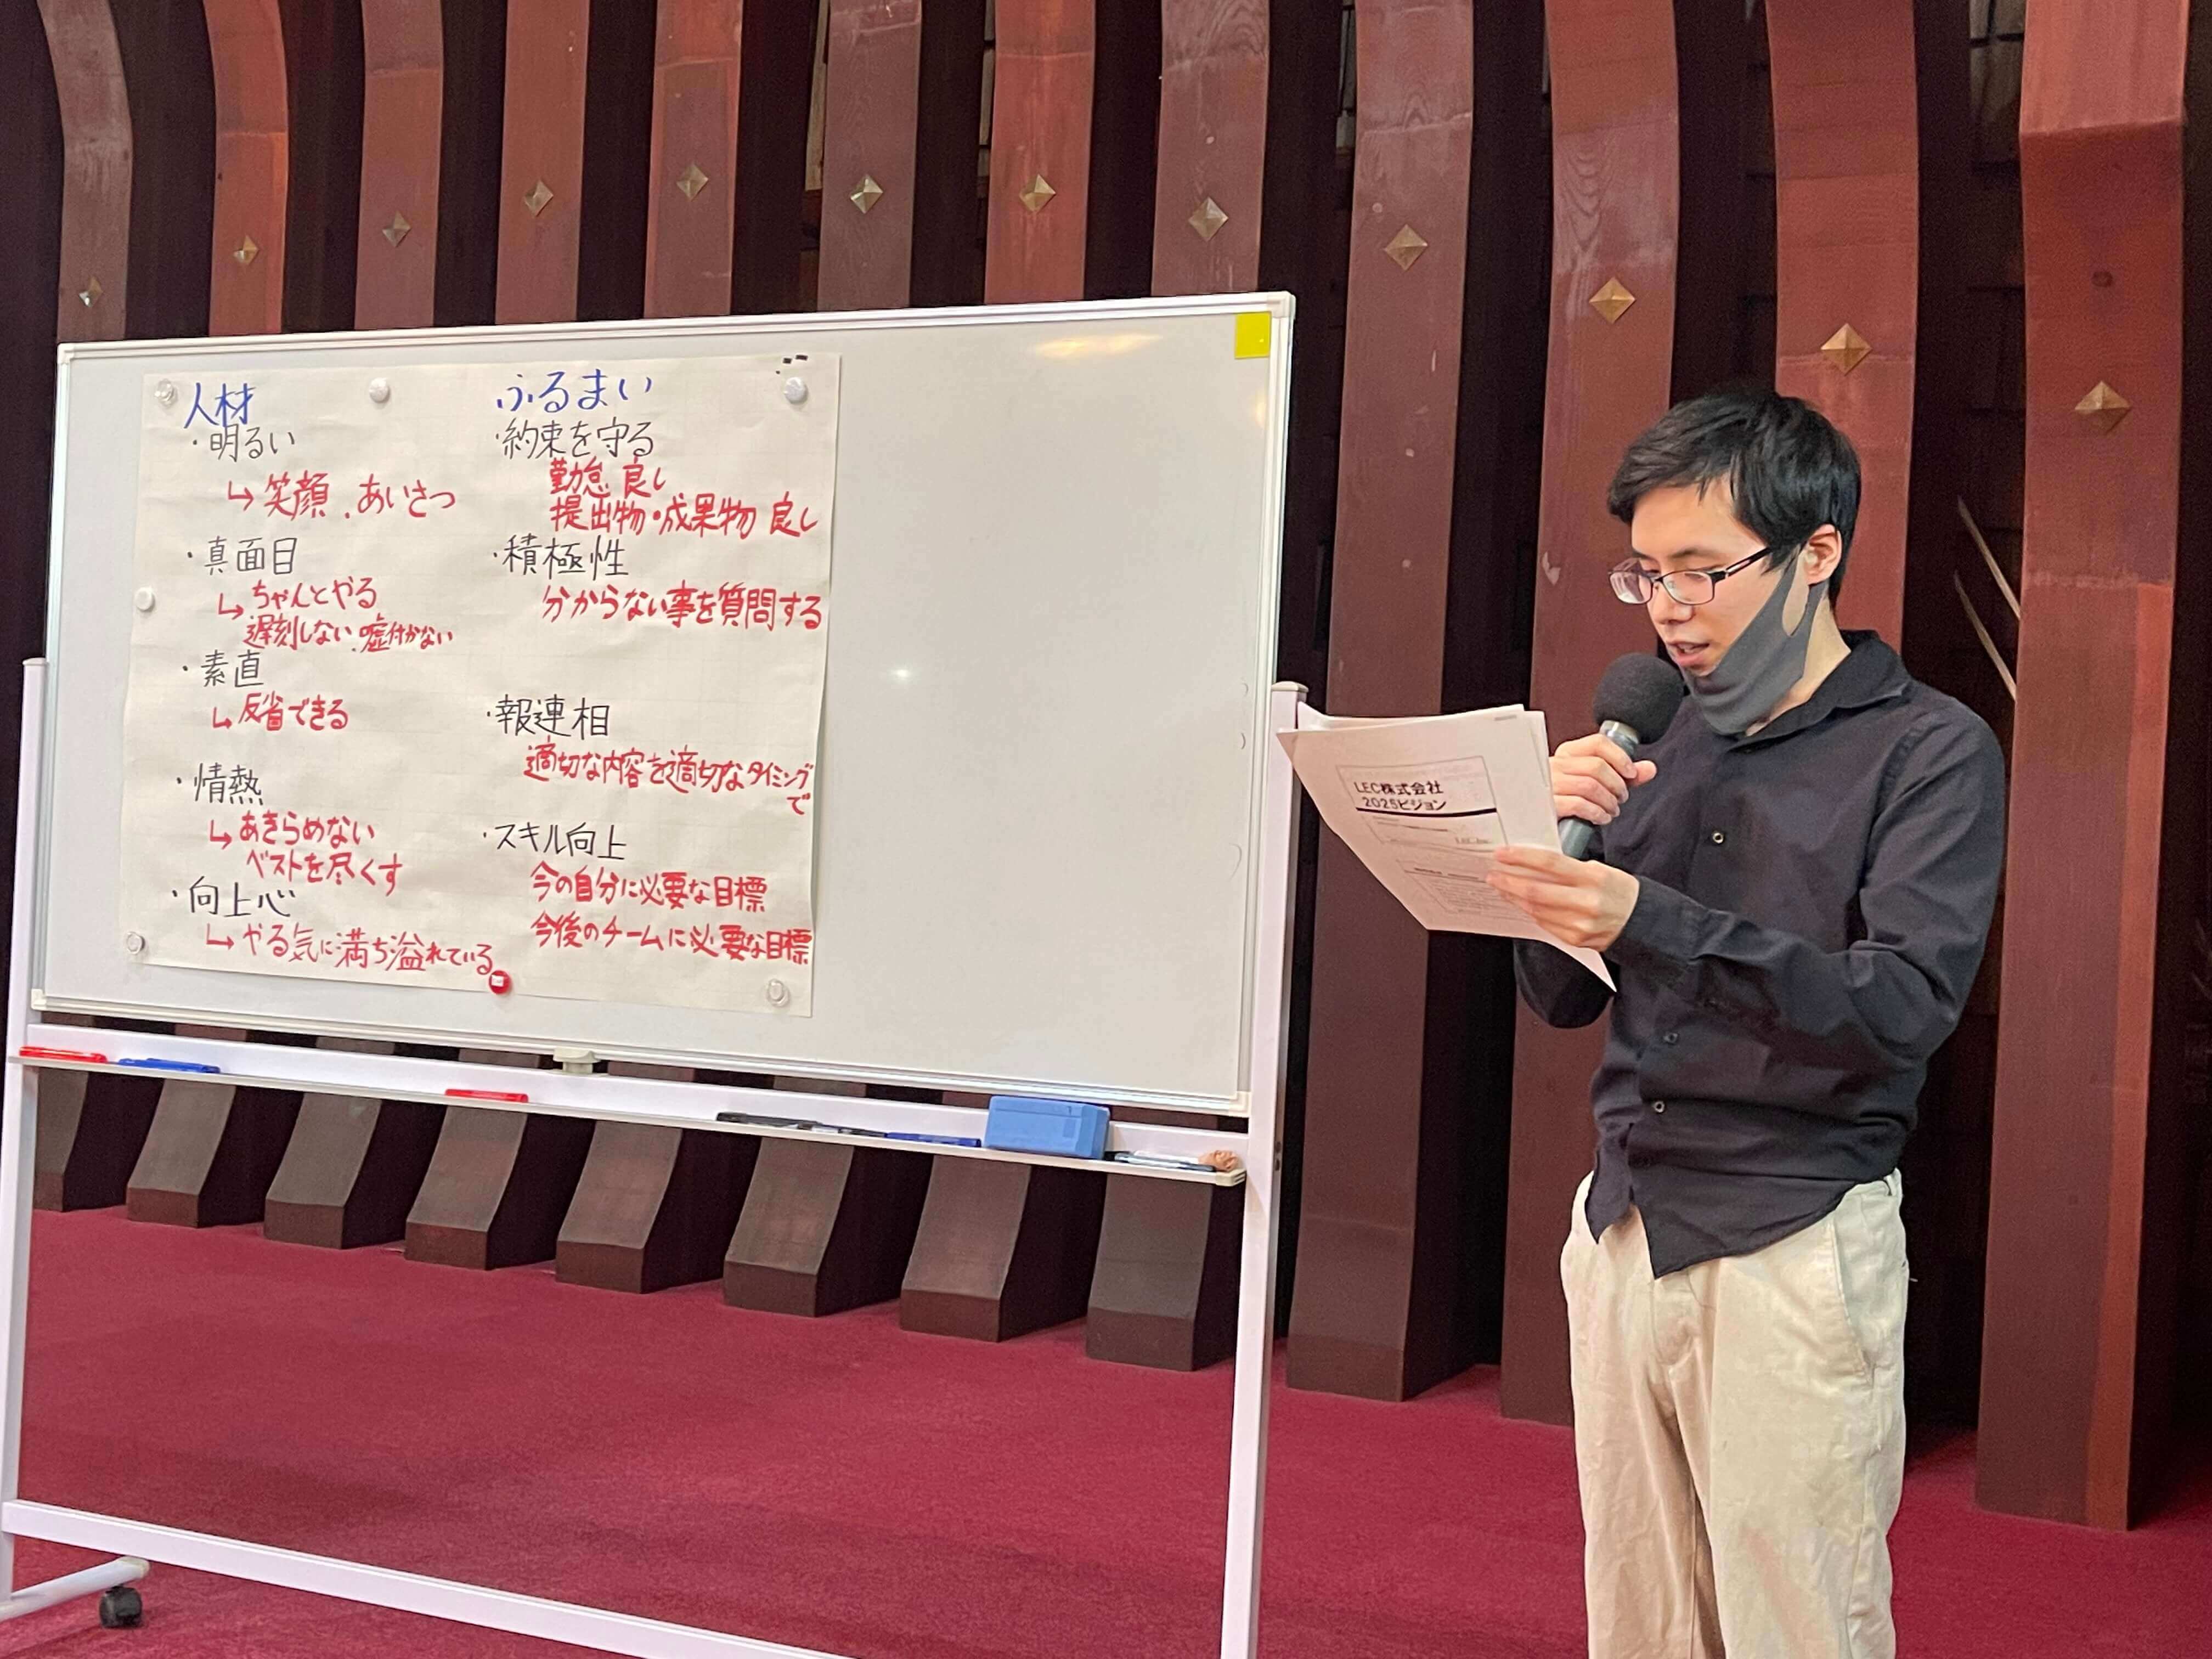 人材
・明るい
↳ 笑顔、あいさつ
・真面目
↳ ちゃんとやる
遅刻しない、嘘付かない
・素直
↳ 反省できる
・情熱
↳ あきらめない
ベストを尽くす
・向上心
↳ やる気に満ち溢れている
ふるまい
・約束を守る
勤怠 良し
提出物・成果物 良し
・積極性
分からない事を質問する
・報連相
適切な内容を適切なタイミング
で
・スキル向上
今の自分に必要な目標
今後のチームに必要な目標
LEC株式会社
2025ビジョン